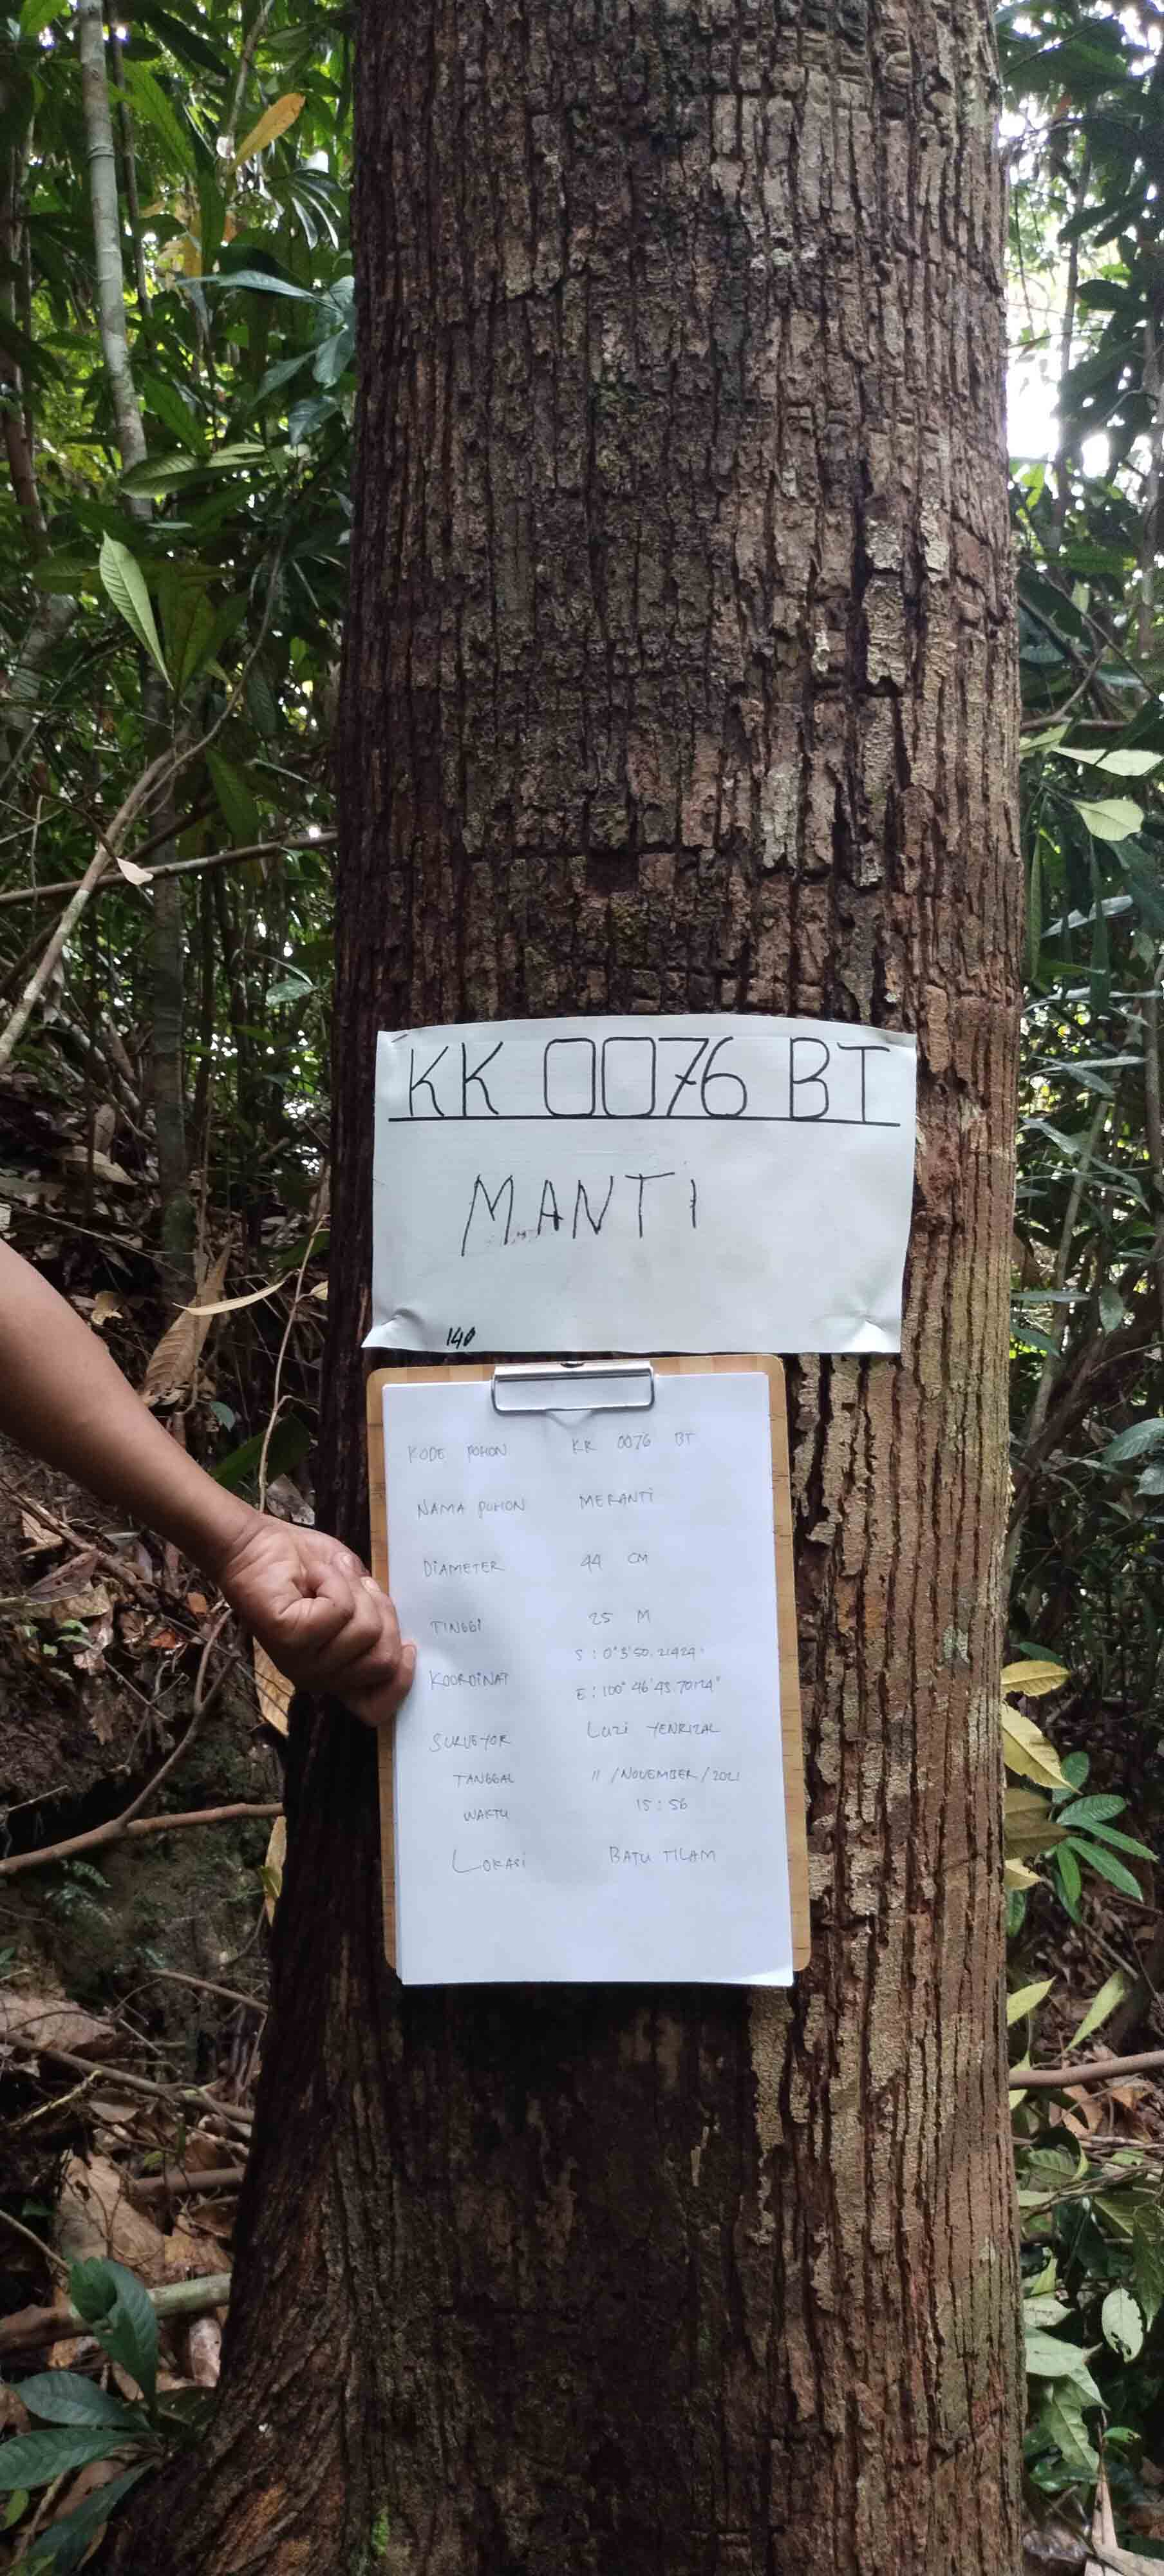 KK 0076 BT
MANTi
140
KODE POHON KR 0076 BT
NAMA POHON MERANTi
DiAMETER 44 CM
TiNGGi 25 M
S : 0° 3' 50, 21424"
KOORDiNAT
E : 100° 46' 43. 70124"
SURVEYOR Luzi YENRIZAL
TANGGAL 11 / NOVEMBER / 2021
WAKTU 15 : 56
LOKASi BATU TILAM